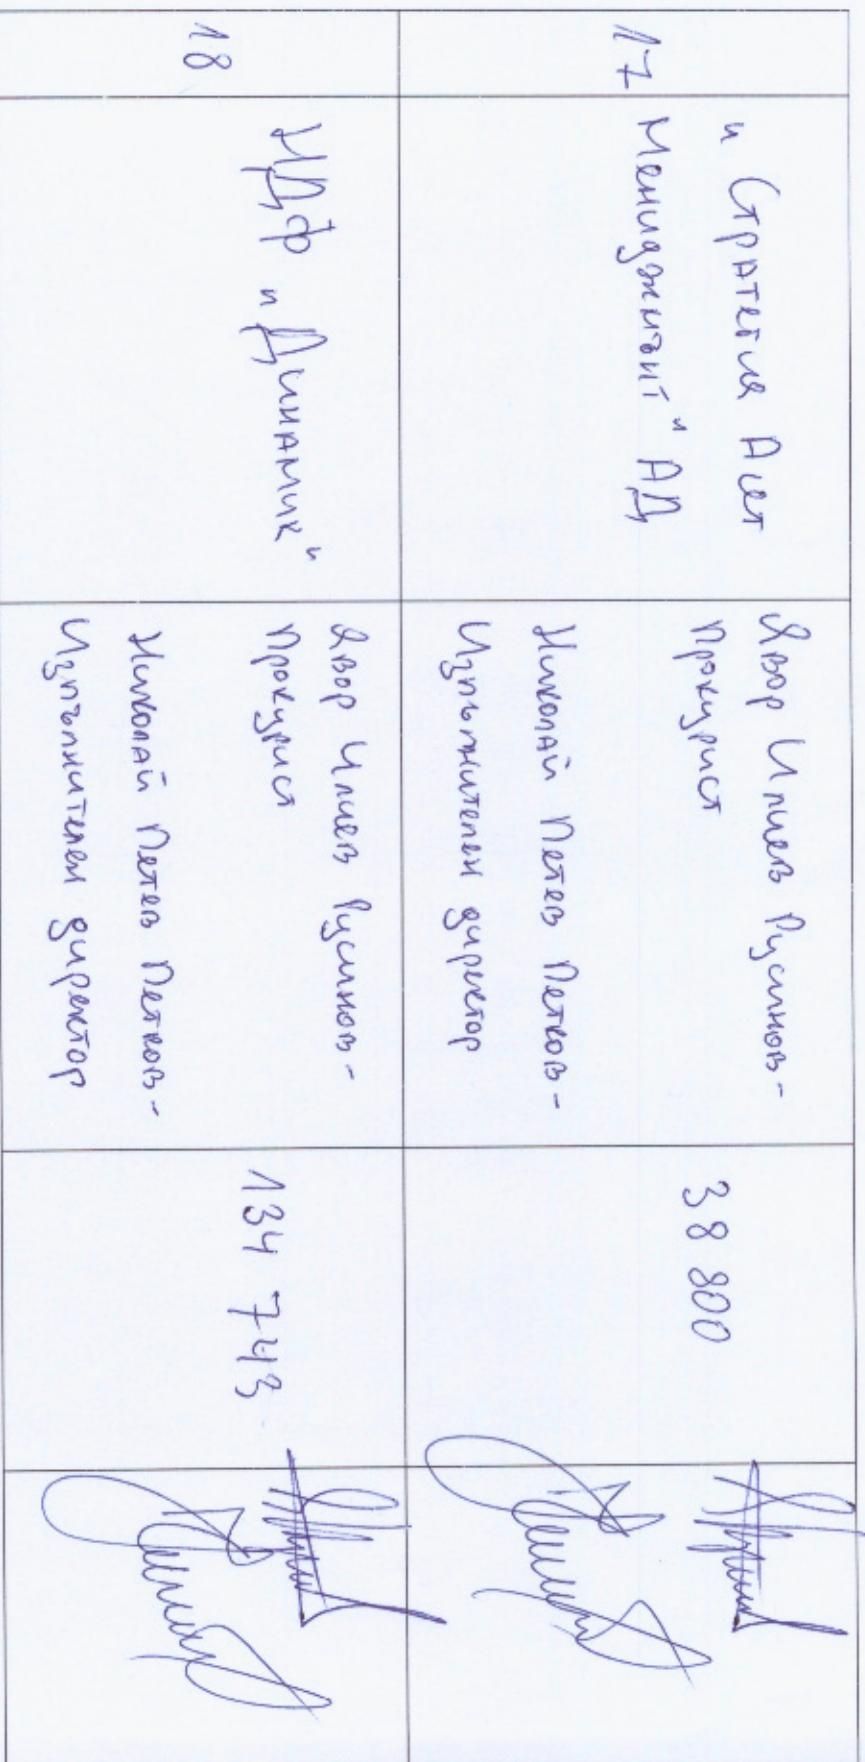 17
„Стратегия Асет
Мениджмънт" АД
Явор Илиев Русинов-
Прокурист
Николай Петев Петков-
Изпълнителен директор
38 800
18
НДФ „Динамик"
Явор Илиев Русинов-
Прокурист
Николай Петев Петков-
Изпълнителен директор
134 743